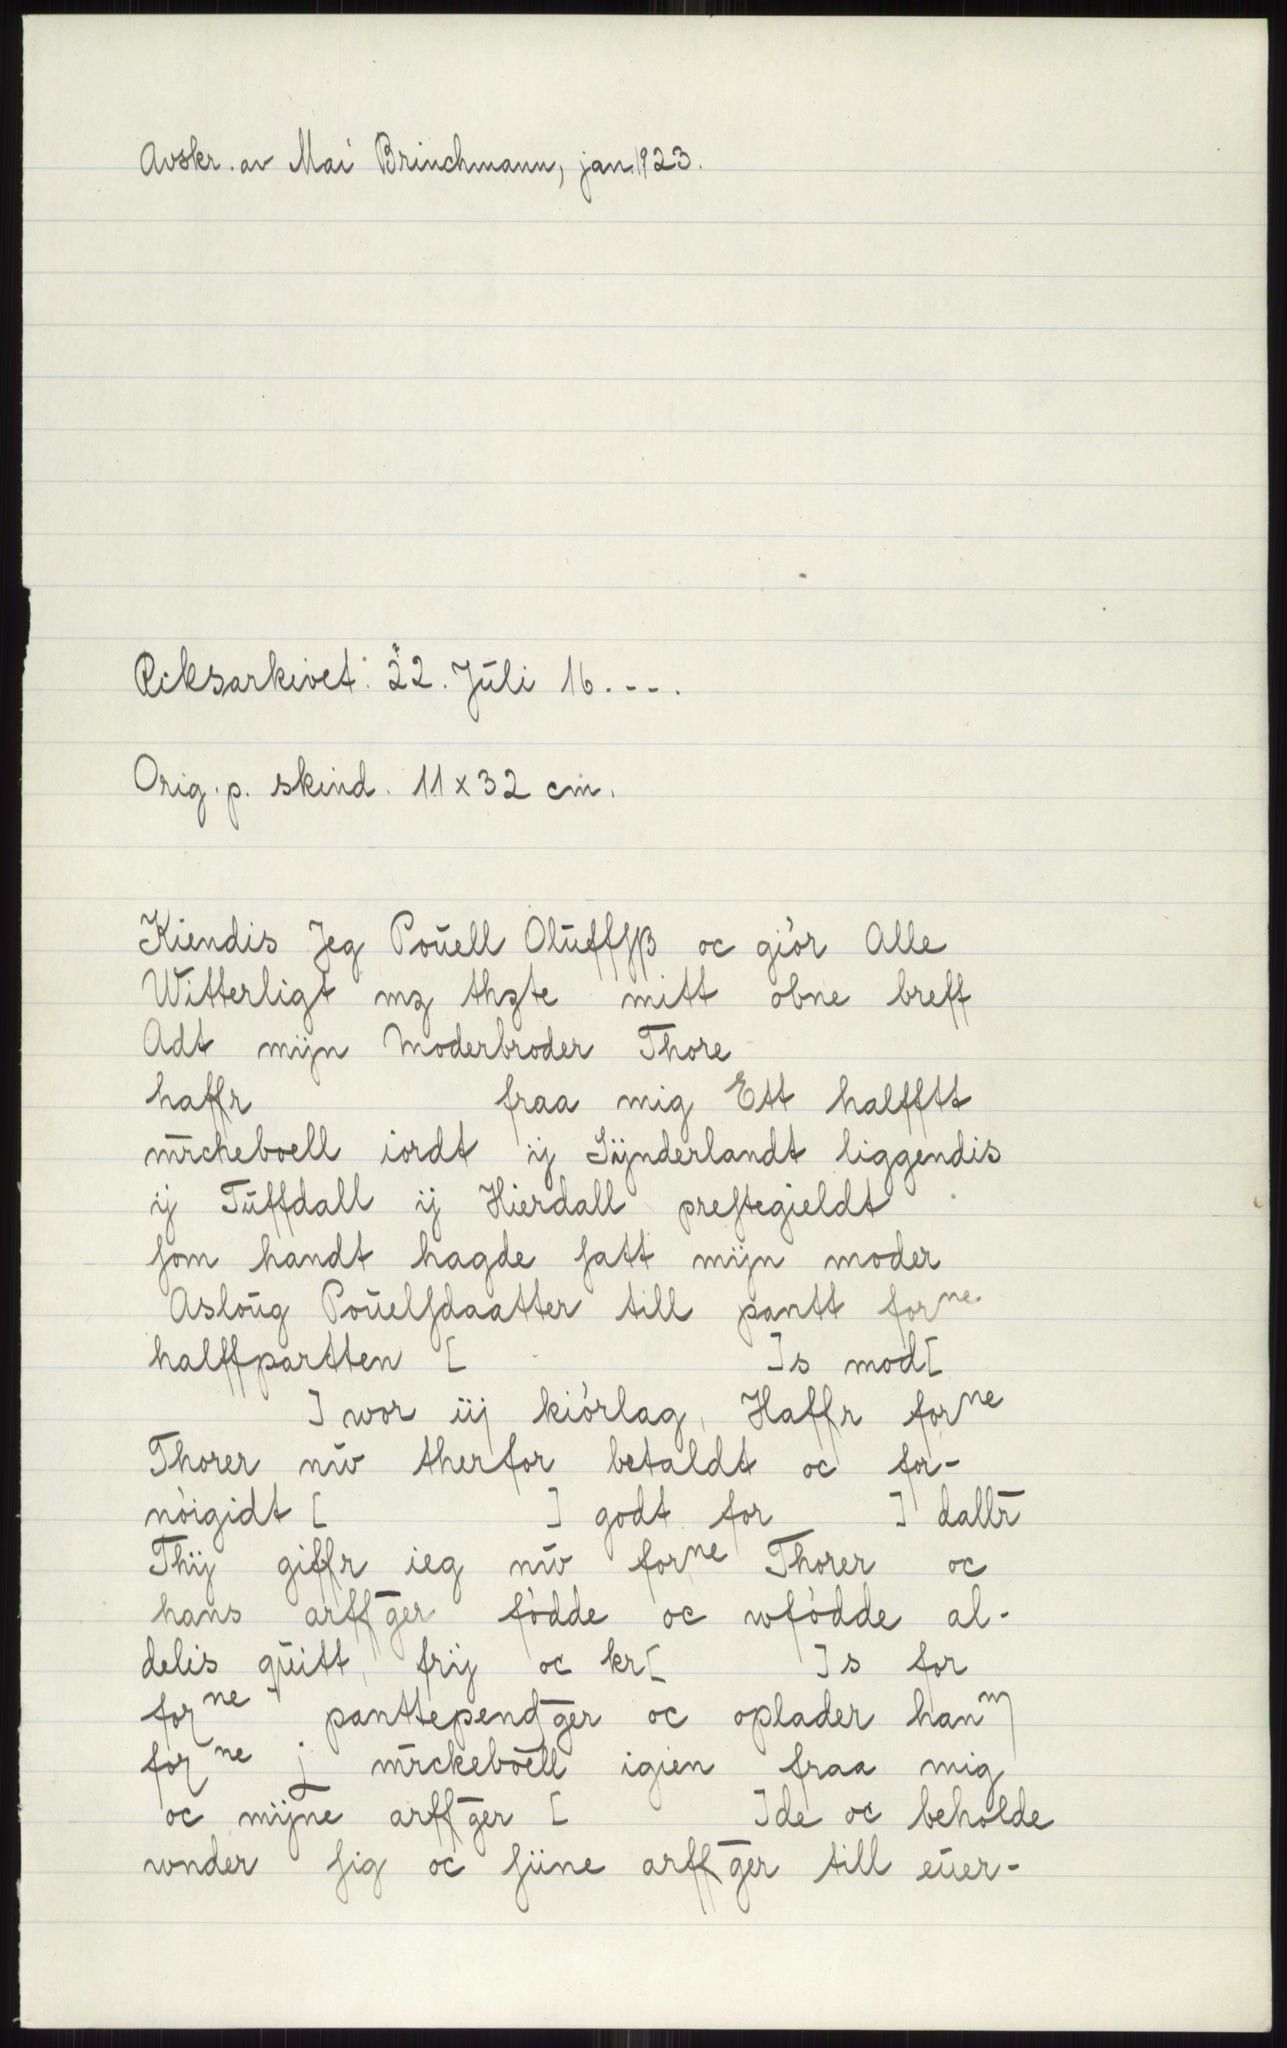 Avskr. av Mai Brinchmann, jan. 1923.
Riksarkivet. 22. Juli 16.---.
Orig. p. skind. 11 x 32 cm.
Kiendis Jeg Pouell Oluffsß oc giör Alle
Witterligt mz thzte mitt obne breff
Adt mijn Moderbroder Thore
haffr fraa mig Ett halfftt
mrckeboell iordt ij Sÿnderlandt liggendis
ij Tuffdall ij Hierdall prestegieldt
som handt hagde satt mijn moder
Asloug Pouelsdaatter till pantt forne
halffpartten [ ]s mod[
] wor iij kiörlag, Haffr forne
Thorer nw therfor betaldt oc for-
nöigidt [ ] godt for ] dallr
Thij giffr ieg nw forne Thorer oc
hans arffger födde oc wfödde al-
delis quitt, frij oc kr[ ]s for
forne panttependger oc oplader hanm
forne j mrckeboell igien fraa mig
oc mijne arffger [ ]de oc beholde
wnder sig oc siine arffger till euer-